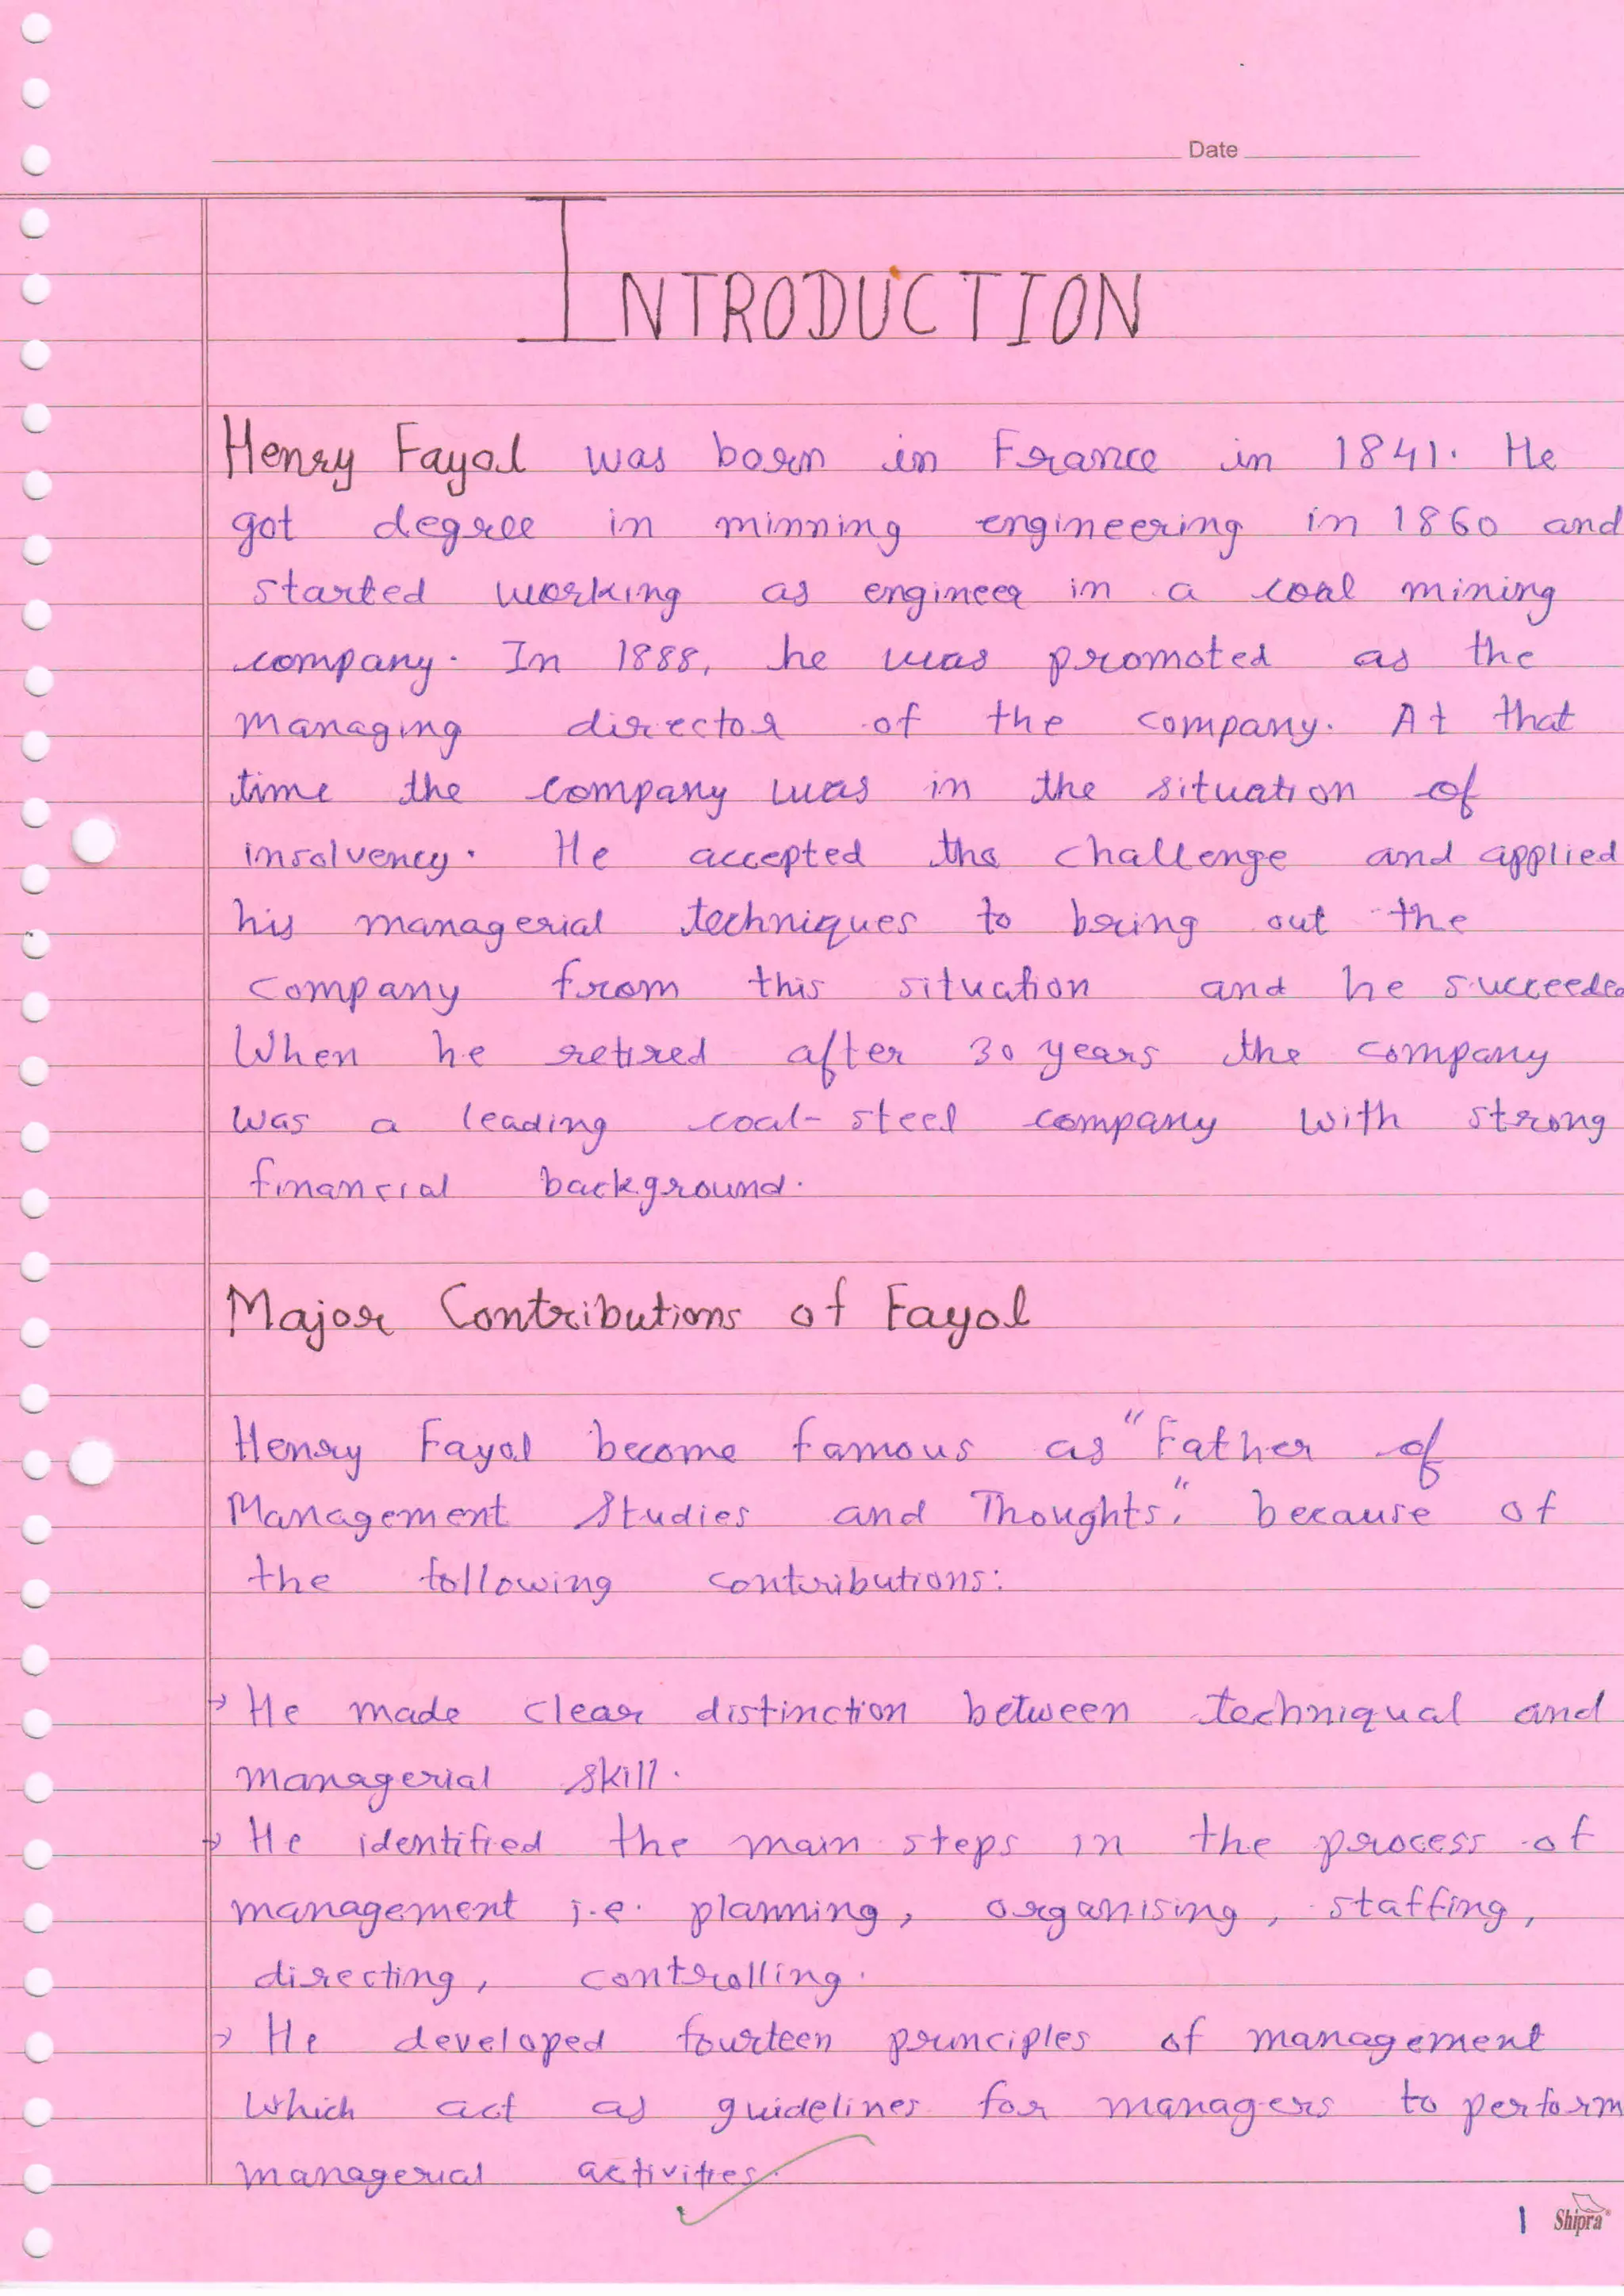 Date
INTRODUCTION
Henry Fayol was born in France in 1841. He
got degree in minning engineering in 1860 and
started working as engineer in a coal mining
company. In 1888, he was promoted as the
managing director of the company. At that
time the company was in the situation of
insolvency. He accepted the challenge and applied
his managerial techniques to bring out the
company from this situation and he succeeded
When he retired after 30 years the company
was a leading coal-steel company with strong
financial background.
Major Contributions of Fayol
Henry Fayol become famous as "Father of
Management Studies and Thoughts," because of
the following contributions:
→ He made clear distinction between techniqual and
managerial skill.
→ He identified the main steps in the process of
management i.e. planning, organising, staffing,
directing, controlling.
→ He developed fourteen principles of management
which act as guidelines for managers to perform
managerial activities.
1 Shipra